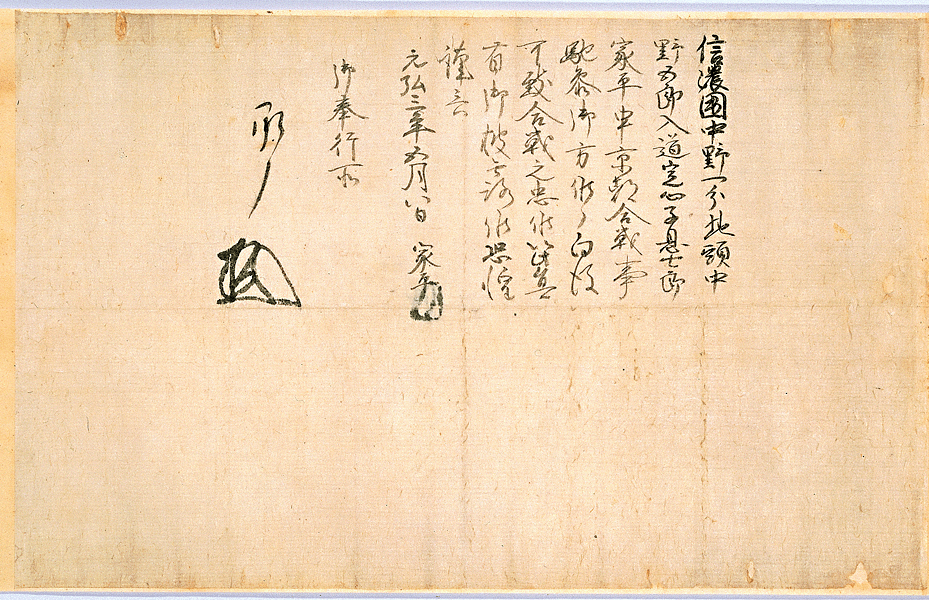 信濃国中野一分地頭中
野五郎入道定心子息七郎
家平申京都合戦事
馳参御方候了自後
可致合戦之忠候以此旨
有御披露候恐惶
謹言
元弘三年五月八日　家平
御奉行所
承了